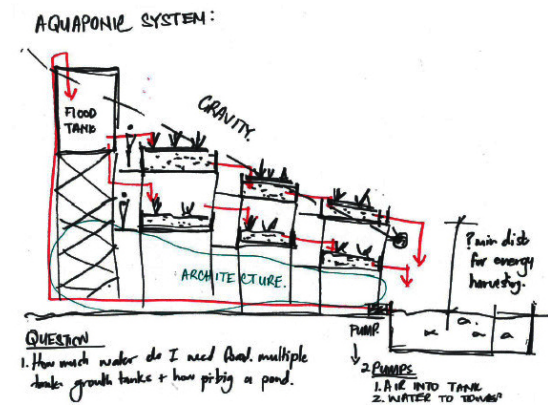 AQUAPONIC SYSTEM:
FLOOD
TANK
GRAVITY.
? min dist
for energy
harvesting.
ARCHITECTURE.
PUMP.
QUESTION
1. How much water do I need multiple
growth tanks + how big a pond.
2 PUMPS
1. AIR INTO TANK
2. WATER TO TOWER